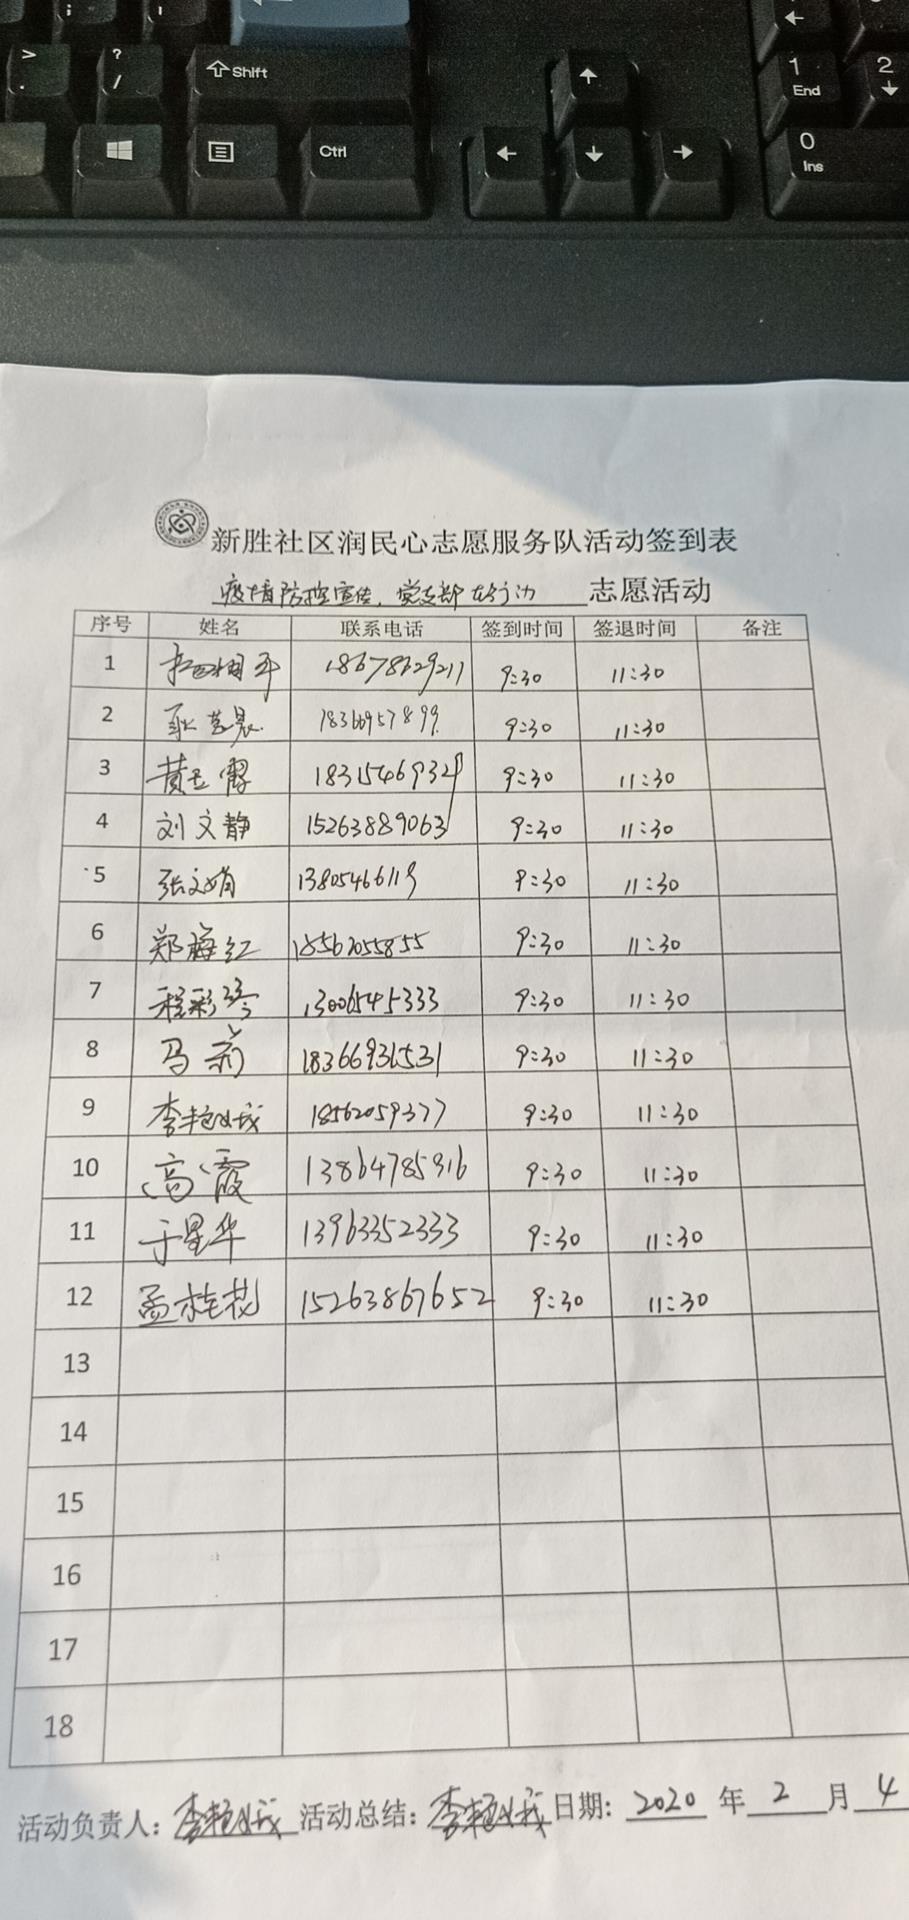 > .
? /
Shift
Ctrl
1 End
2
0 Ins
新胜社区润民心志愿服务队活动签到表
疫情防控宣传，党支部在行动 志愿活动
序号 姓名 联系电话 签到时间 签退时间 备注
1 18678629211 9:30 11:30
2 18366957899 9:30 11:30
3 黄玉霞 18315469329 9:30 11:30
4 刘文静 15263889063 9:30 11:30
5 张文娟 13805466119 9:30 11:30
6 郑梅红 18562055855 9:30 11:30
7 程彩琴 13006545333 9:30 11:30
8 马莉 18366931531 9:30 11:30
9 李艳娥 18562059377 9:30 11:30
10 高霞 13864785916 9:30 11:30
11 于星华 13963352333 9:30 11:30
12 孟桂花 15263867652 9:30 11:30
13
14
15
16
17
18
活动负责人：李艳娥 活动总结：李艳娥 日期：2020 年 2 月 4